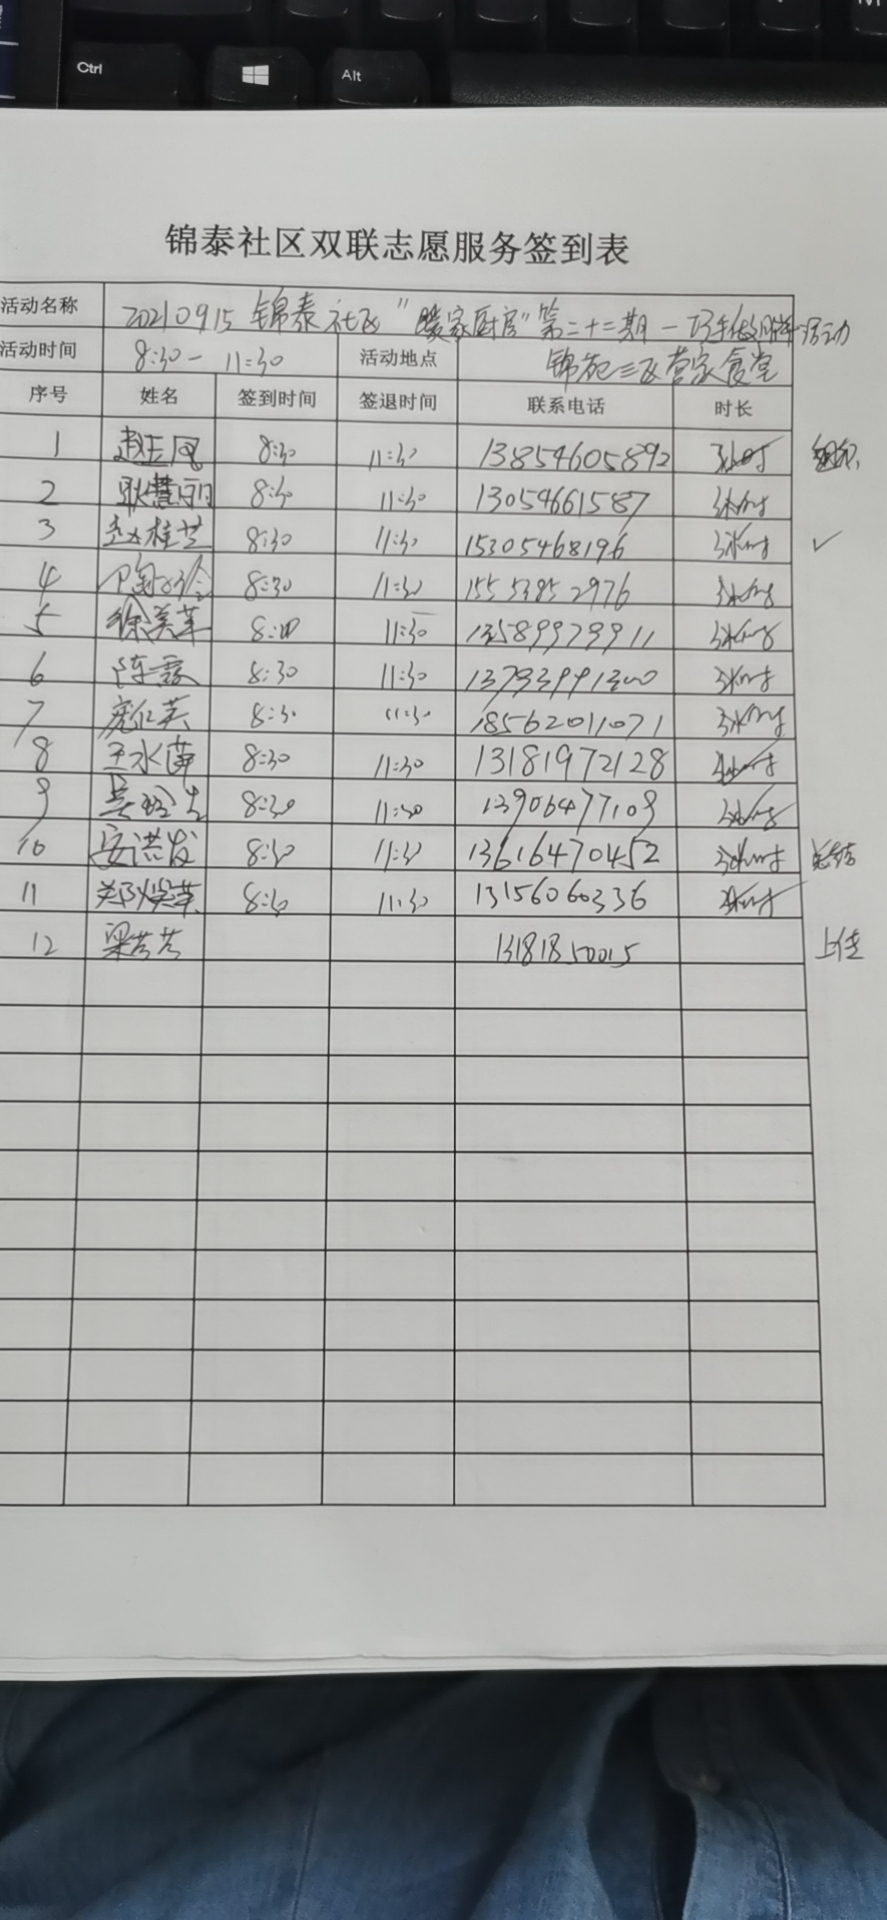 Ctrl
Alt
锦泰社区双联志愿服务签到表
活动名称 20210915 锦泰社区"暖家厨房"第二十二期一巧手做 活动
活动时间 8:30- 11:30 活动地点 锦苑三区营家食堂
序号 姓名 签到时间 签退时间 联系电话 时长
1 赵玉凤 8:30 11:30 13854605892 3小时 组织
2 耿慧丽 8:30 11:30 13054661587 3小时
3 赵桂芝 8:30 11:30 15305468196 3小时 ✓
4 8:30 11:30 15553852976 3小时
5 徐美革 8:00 11:30 13589979911 3小时
6 陈霞 8:30 11:30 13793991300 3小时
7 庞红英 8:30 11:30 18562011071 3小时
8 王水萍 8:30 11:30 13181972128 3小时
9 8:30 11:30 13906477109 3小时
10 安洪发 8:30 11:30 13616470452 3小时 总结
11 郑焕英 8:30 11:30 13156060336 3小时
12 梁芳芳 13181850015 上传